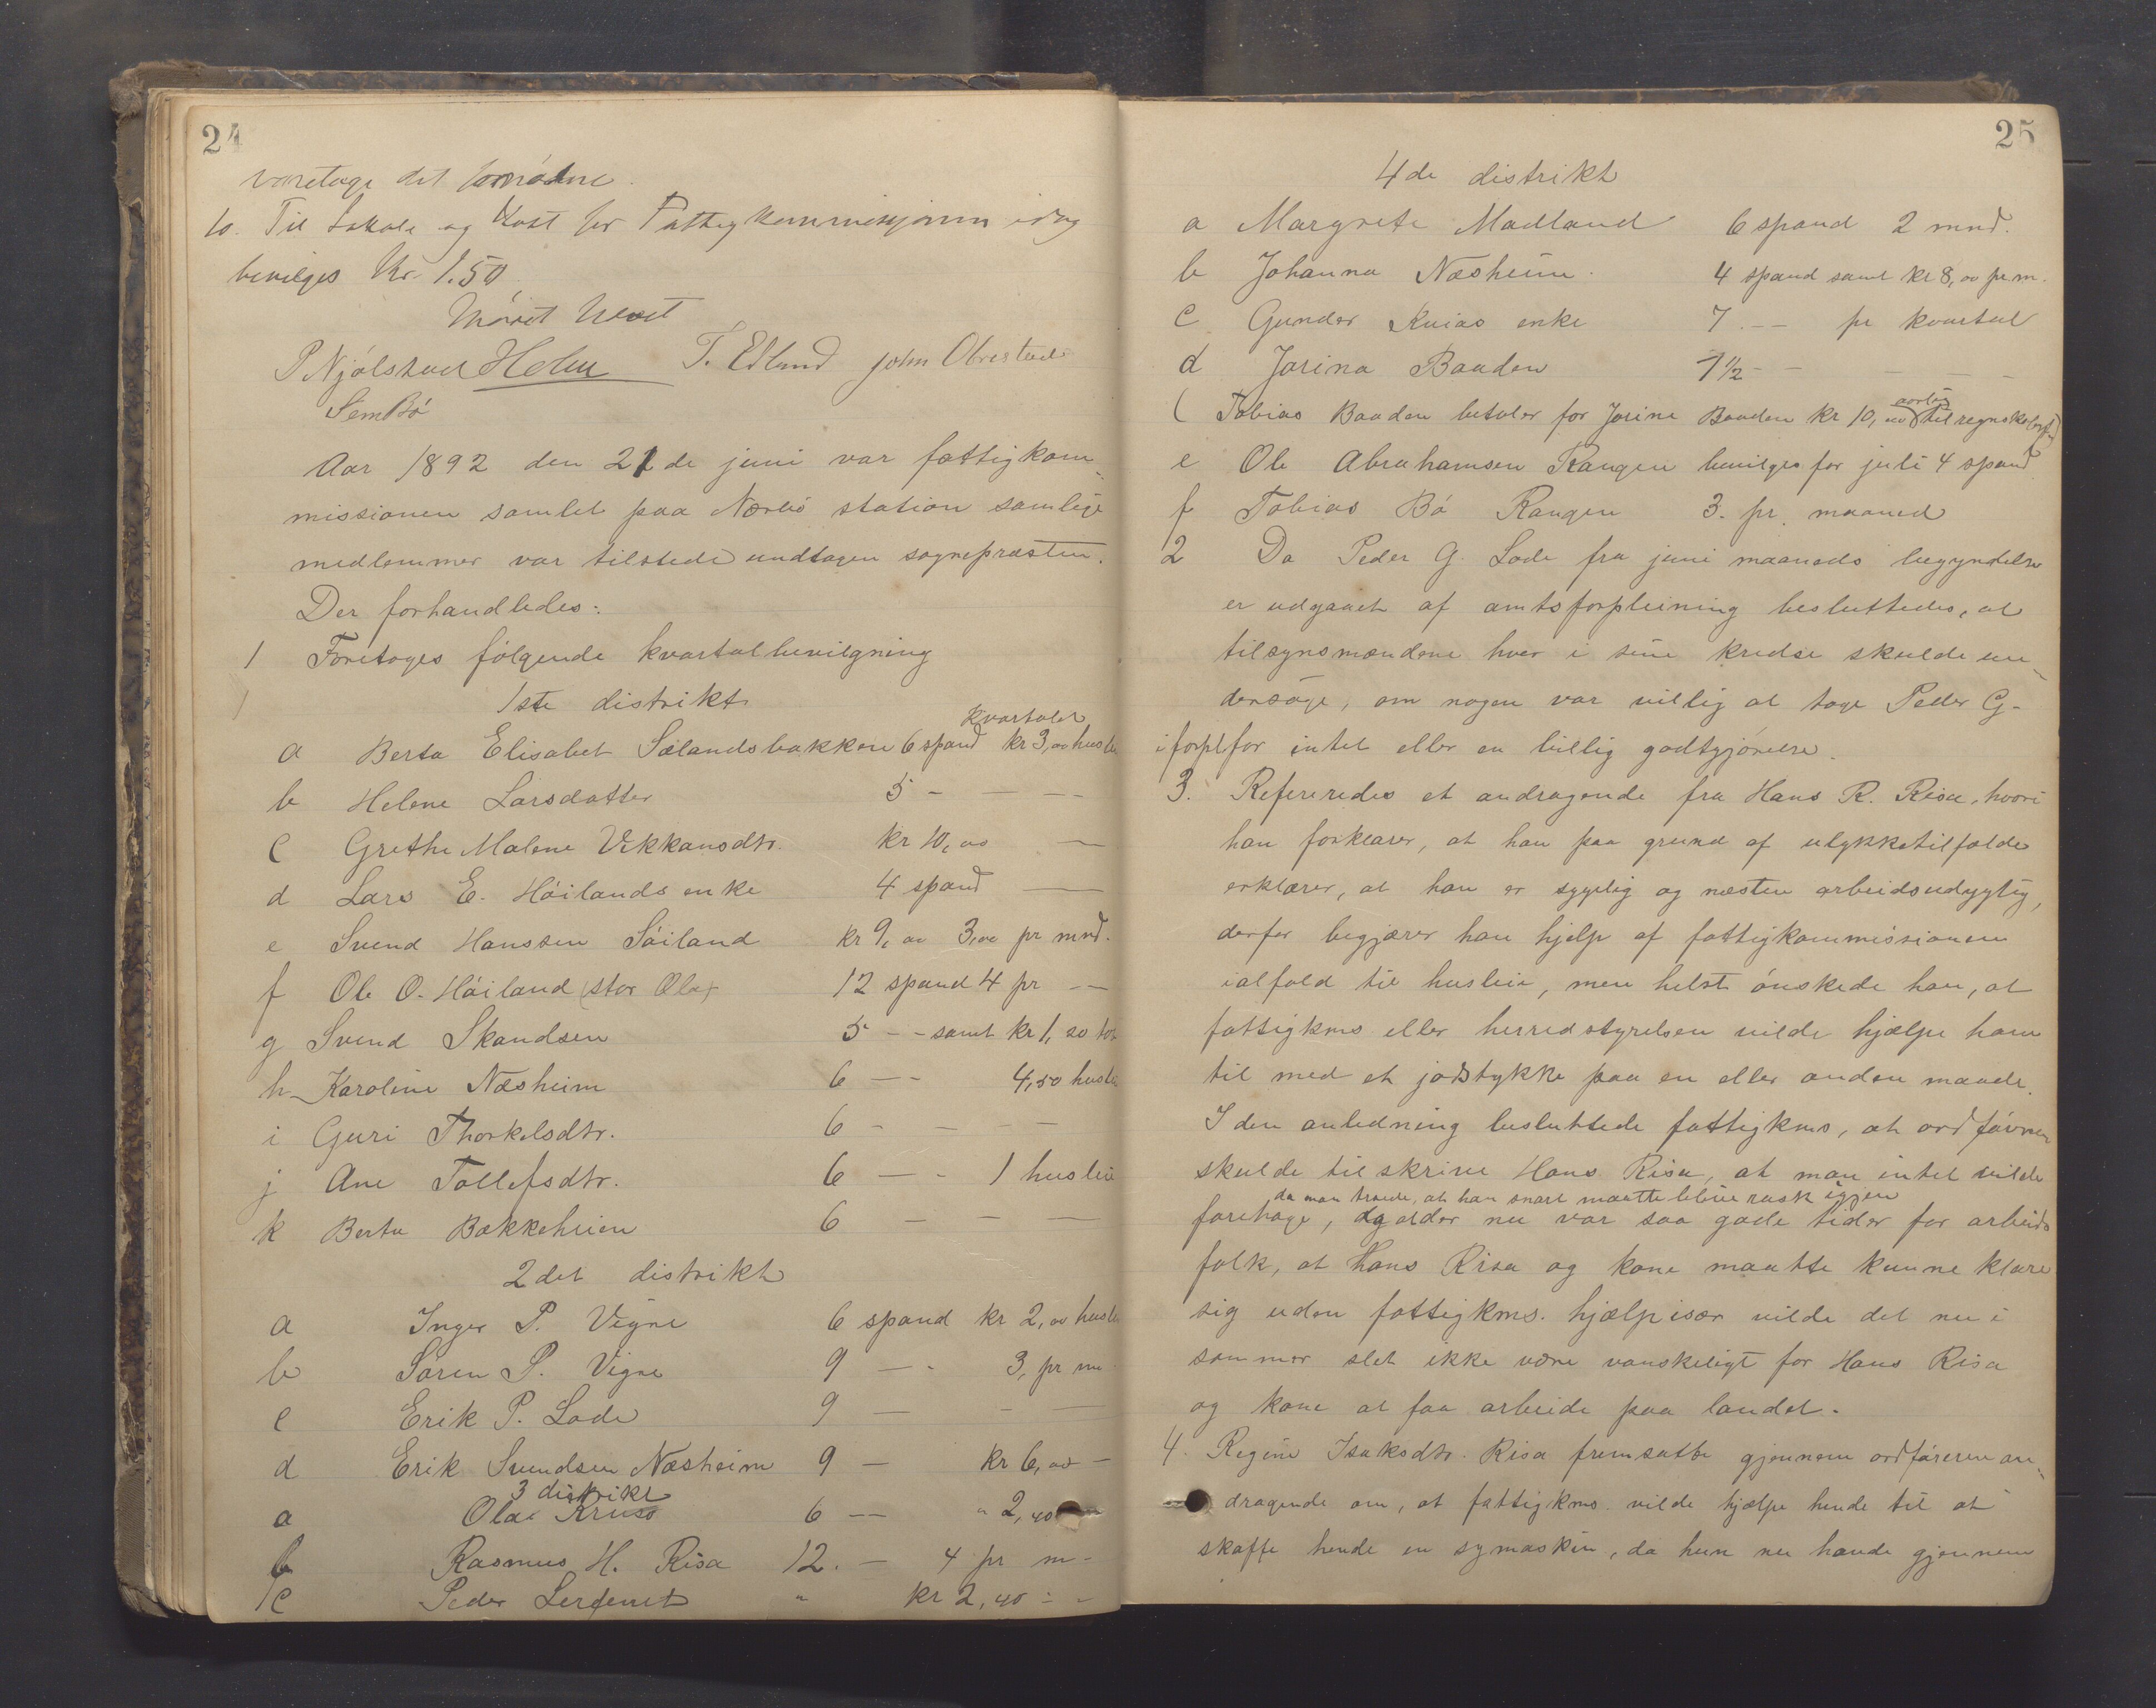 24
varetage det fornødne.
10. Til Lokale og Kost for Fattigkommissjonen idag
bevilges Kr. 1.50.
Mødet hævet
P Njølstad Holm T. Edland John Obrestad
Sem Bö
Aar 1892 den 21de juni var fattigkom-
missionen samlet paa Nærbö station samlige
medlemmer var tilstede undtagen sognepræsten.
Der forhandledes:
1 Foretoges følgende kvartalbevilgning
1ste distrikt
kvartalet
a Berta Elisabet Sælandsbakken 6 spand kr 3,00 husleie
b Helene Larsdatter 5 - — - -
c Grethe Malene Vekkansdtr. kr 10,00 —
d Lars E. Höilands enke 4 spand —
e Svend Hanssen Söiland kr 9,00 3,00 pr mnd.
f Ole O. Höiland (stor Ola) 12 spand 4 pr - -
g Svend Skandsen 5 - - samt kr 1,20
h Karoline Næsheim 6 — - 4,50 husleie
i Guri Thorkelsdtr. 6 - — - —
j Ane Tollefsdtr. 6 — - 1 husleie
k Berta Bakkeheien 6 — — —
2det distrikt
a Inger P. Vigre 6 spand kr 2,00 husleie
b Sören P. Vigre 9 — - 3, pr m
c Erik P. Lode 9 — - —
d Erik Svendsen Næsheim 9 — kr 6,00 —
3 distrikt
a Olai Kruse 6 — " 2,40
b Rasmus H. Risa 12. — 4 pr m -
c Peder " kr 2,40 - -
25
4de distrikt
a Margrete Madland 6 spand 2 mnd.
b Johanna Næsheim. 4 spand samt kr 8,00 pr. m.
c Gunder Kvias enke 7. - - pr kvartal
d Jorina Baaden 7½ - - - - -
aarlig
( Tobias Baaden betaler for Jorina Baaden kr 10,00 til regnskabsf.)
e Ole Abrahamsen Rangen bevilges for juli 4 spand
f Tobias Bö Rangen 3. pr. maaned
2 Da Peder G. Lode fra juni maaneds begyndelse
er udgaaet af amtsforpleining besluttedes, at
tilsynsmændene hver i sine kredse skulde un-
dersöge, om nogen var villig at tage Peder G.
i forpl for intet eller en billig godtgjörelse.
3. Refereredes et andragende fra Hans R. Risa, hvori
han forklarer, at han paa grund af ulykketilfælde
erklærer, at han er sygelig og næsten arbeidsudygtig,
derfor begjærer han hjelp af fattigkommissionen
ialfald til husleie, men helst önskede han, at
fattigkms eller herredstyrelsen vilde hjælpe ham
til med et jodstykke paa en eller anden maade.
I den anledning besluttede fattigkms, at ordföreren
skulde tilskrive Hans Risa, at man intet vilde
da man troede, at han snart maatte blive rask igjen
foretage, og da der nu var saa gode tider for arbeids
folk, at Hans Risa og kone maatte kunne klare
sig uden fattigkms. hjælp især vilde det nu i
sommer slet ikke være vanskeligt for Hans Risa
og kone at faa arbeide paa landet.
4. Regine Isaksdtr. Risa fremsatte gjennem ordföreren an-
dragende om, at fattigkms. vilde hjælpe hende til at
skaffe hende en symaskin, da hun nu havde gjennem